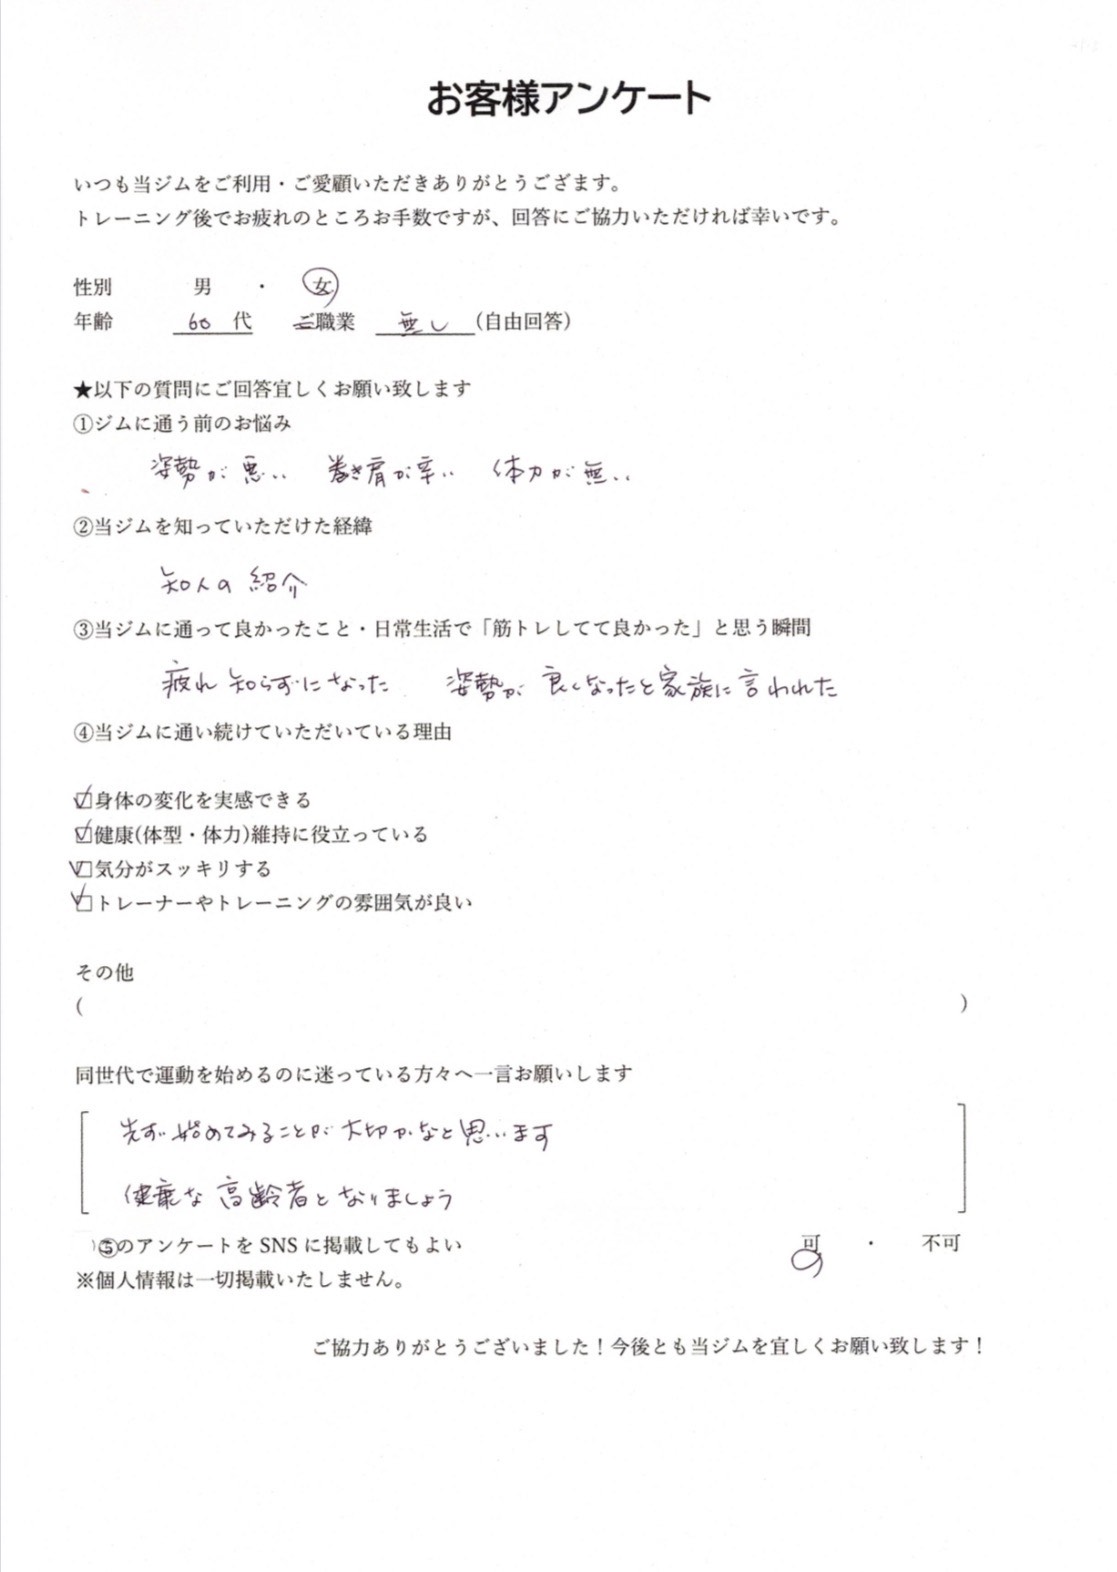 お客様アンケート
いつも当ジムをご利用・ご愛顧いただきありがとうござます。
トレーニング後でお疲れのところお手数ですが、回答にご協力いただければ幸いです。
性別 男 ・ 女
年齢 60 代 ご職業 無し (自由回答)
★以下の質問にご回答宜しくお願い致します
①ジムに通う前のお悩み
姿勢が悪い 巻き肩が辛い 体力が無い
②当ジムを知っていただけた経緯
知人の紹介
③当ジムに通って良かったこと・日常生活で「筋トレしてて良かった」と思う瞬間
疲れ知らずになった 姿勢が良くなったと家族に言われた
④当ジムに通い続けていただいている理由
☑身体の変化を実感できる
☑健康(体型・体力)維持に役立っている
☑気分がスッキリする
☑トレーナーやトレーニングの雰囲気が良い
その他
( )
同世代で運動を始めるのに迷っている方々へ一言お願いします
先ず始めてみることが大切かなと思います
健康な高齢者となりましょう
⑤のアンケートをSNSに掲載してもよい 可 ・ 不可
※個人情報は一切掲載いたしません。
ご協力ありがとうございました！今後とも当ジムを宜しくお願い致します！